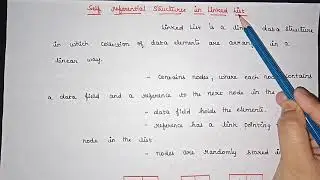 Self referential Structures in Linked List
Linked List is a data structure
in which collection of data elements are arranged in a
linear way.
- contains nodes, where each node contains
a data field and a reference to the next node in the
- data field holds the elements.
- reference has a link pointing
node in the list
- nodes are randomly stored in